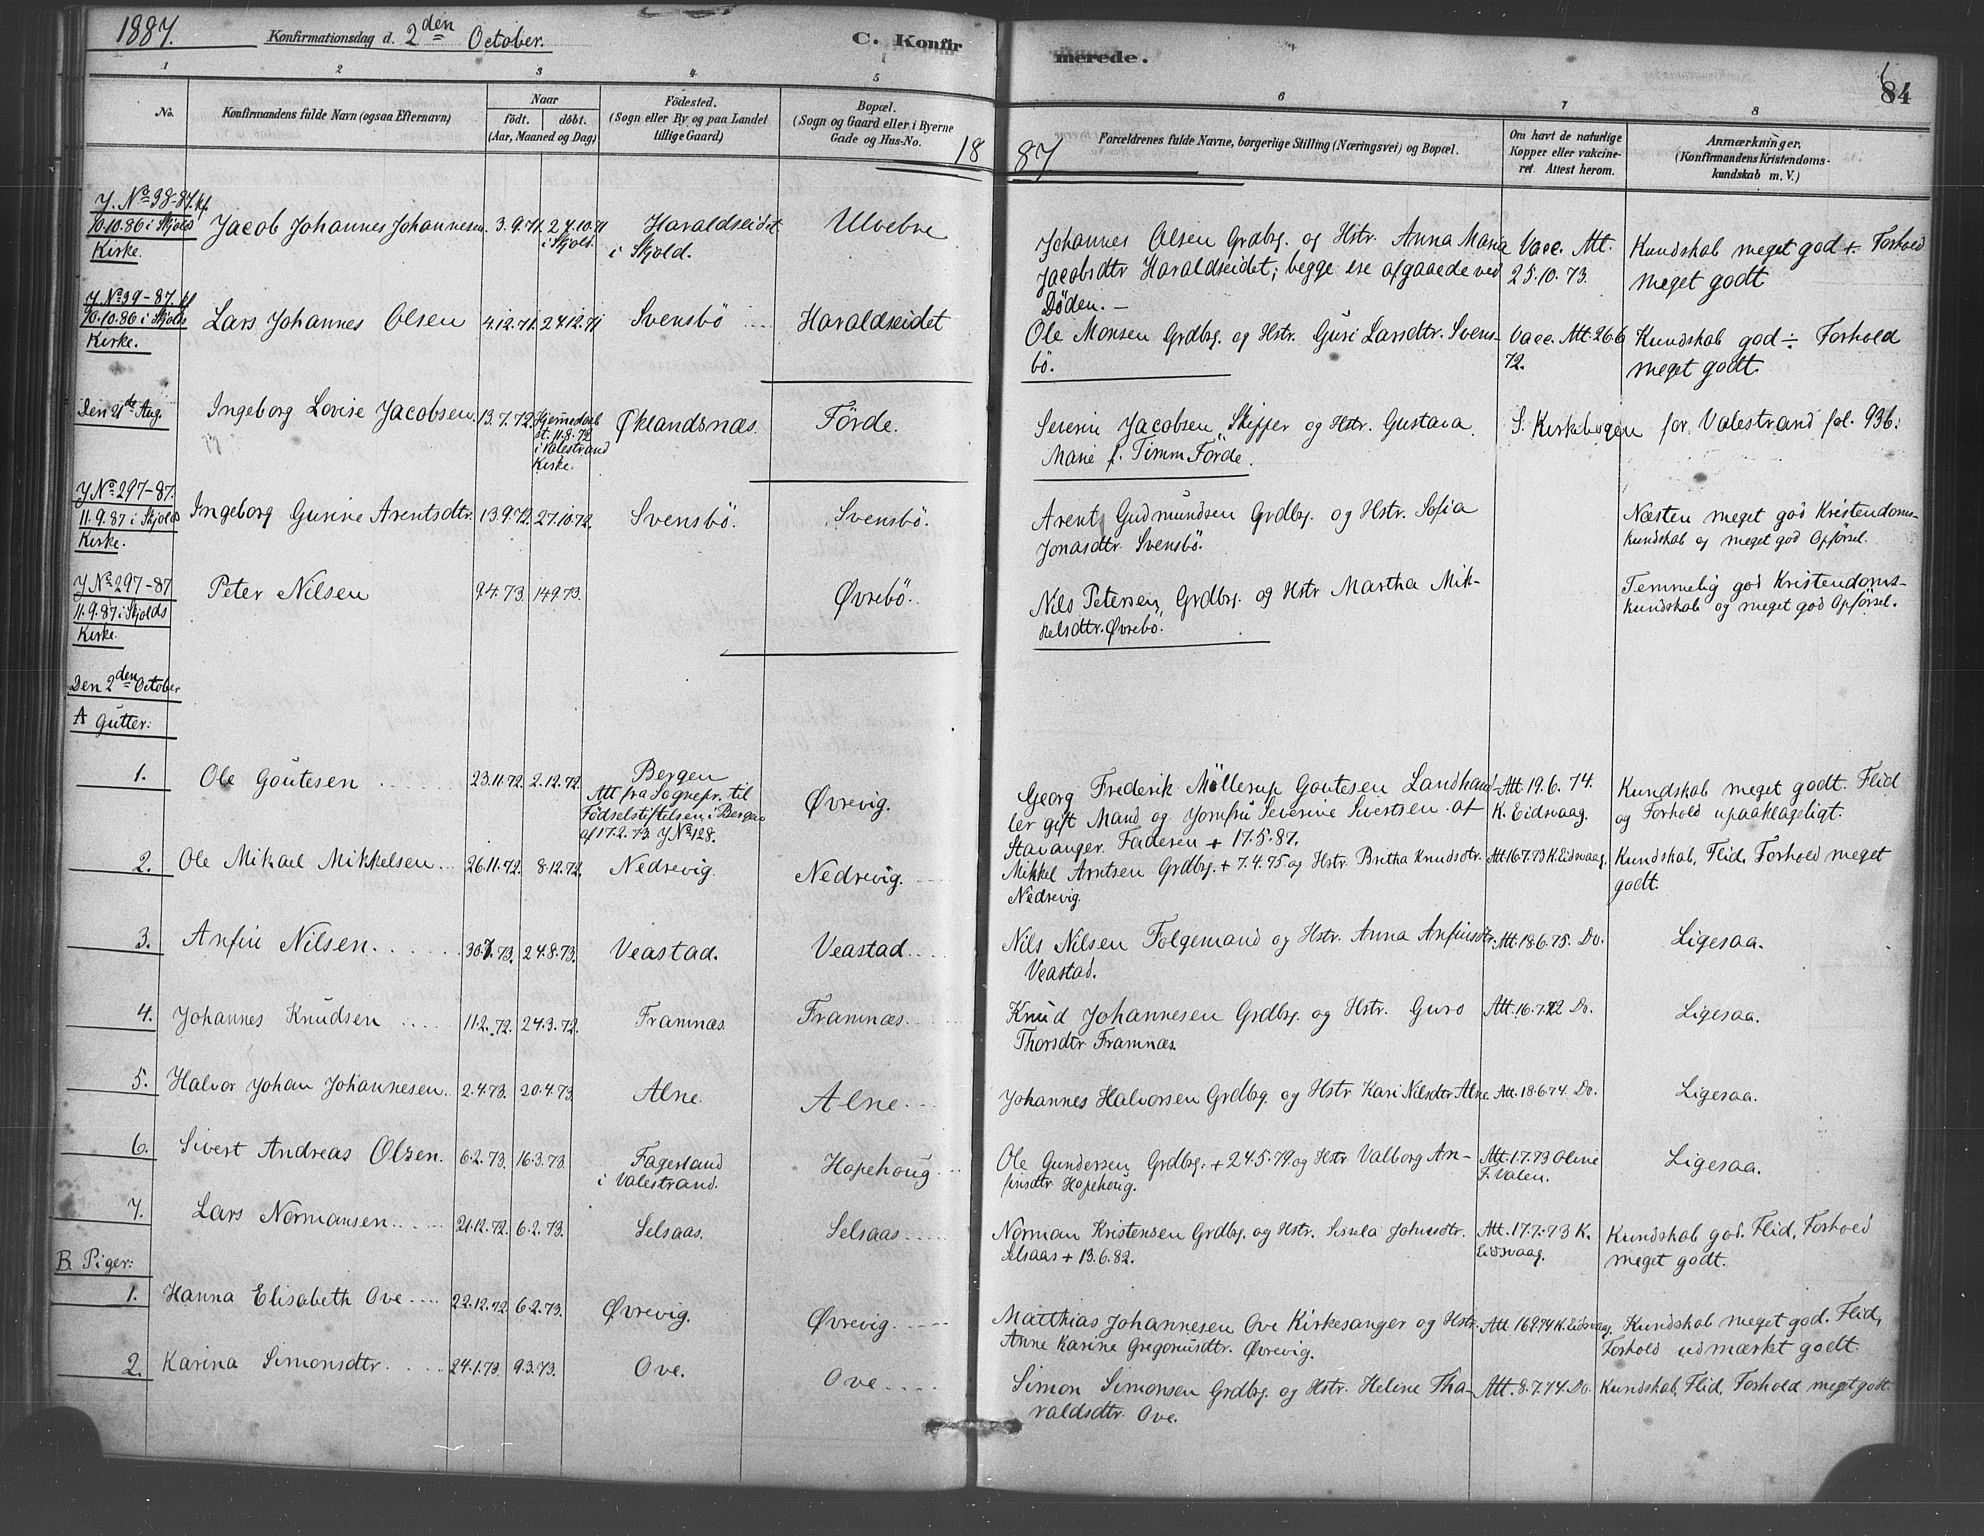 1887. Konfirmationsdag d. 2den October. C. Konfirmerede. 84
1 2 3 4 5 6 7 8
No. Konfirmandens fulde Navn (ogsaa Efternavn) Naar födt. döbt. (Aar, Maaned og Dag) Födested. (Sogn eller By og paa Landet tillige Gaard) Bopæl. (Sogn og Gaard eller i Byerne Gade og Hus-No. Forældrenes fulde Navne, borgerlige Stilling (Næringsvei) og Bopæl. Om havt de naturlige Kopper eller vakcineret. Attest herom. Anmærkninger, (Konfirmandens Kristendomskundskab m. V.)
1887.
J. No 38-87. kf. 10.10.86 i Skjolds Kirke. Jacob Johannes Johannesen. 3.9.71. 24.10.71 i Skjold. Haraldseidet i Skjold. Ulvebne
Johannes Olsen Grdbg. og Hstr. Anna Maria Jacobsdtr Haraldseidet; begge ere afgaaede ved Döden. — Vacc. Att. 25.10.73. Kundskab meget god + Forhold meget godt.
J. No 39-87. kf 10.10.86 i Skjolds Kirke. Lars Johannes Olsen 4.12.71. 24.12.71 Svensbö Haraldseidet
Ole Monsen Grdbg. og Hstr. Guri Larsdtr. Svensbö. Vacc. Att. 26.6 72. Kundskab god ÷ Forhold meget godt.
Den 21de Aug. Ingeborg Lovise Jacobsen. 13.7.72. Hjemmedöbt st. 11.8.72 i Valestrand Kirke. Øklandsnæs Förde.
Severin Jacobsen Skipper og Hstr. Gustava Marie f. Timm Förde. S. Kirkebogen for Valestrand fol. 93b.
J No 297-87. 11.9.87 i Skjolds Kirke. Ingeborg Gurine Arentsdtr. 13.9.72. 27.10.72. Svensbö. Svensbö.
Arent Gudmundsen Grdbg. og Hstr. Sofia Jonasdtr. Svensbö. Næsten meget god Kristendomskundskab og meget god Opførsel.
J No 297-87 11.9.87 i Skjolds Kirke. Peter Nilsen 9.4.73. 14.9.73. Øvrebö.
Nils Petersen, Grdbg. og Hstr Martha Mikkelsdtr. Øvrebö. Temmelig god Kristendomskundskab og meget god Opførsel.
Den 2den October
A Gutter:
1. Ole Goutesen 23.11.72. 2.12.72. Bergen Att fra Sognepr. til Födselstiftelsen i Bergen af 17.2.73. J No 128. Øvrevig.
Georg Frederik Möllerup Goutesen Landhandler gift Mand og Jomfru Severine Sivertsen af Stavanger. Faderen + 17.5.87. Att. 19.6.74. K. Eidsvaag. Kundskab meget godt. Flid og Forhold upaaklageligt.
2. Ole Mikael Mikkelsen 26.11.72. 8.12.72. Nedrevig. Nedrevig.
Mikkel Arntsen Grdbg. + 7.4.75 og Hstr. Britha Knudsdtr. Nedrevig. Att 16.7.73 K. Eidsvaag. Kundskab, Flid, Forhold meget godt.
3. Anfin Nilsen. 30.7.73. 24.8.73. Veastad. Veastad
Nils Nilsen Folgemand og Hstr. Anna Anfinsdtr. Veastad. Att. 18.6.75. Do. Ligesaa.
4. Johannes Knudsen 11.2.72. 24.3.72. Framnæs Framnæs.
Knud Johannesen Grdbg. og Hstr. Guro Thorsdtr Framnæs. Att. 16.7.72 Do. Ligesaa.
5. Halvor Johan Johannesen. 2.4.73. 20.4.73. Alne. Alne.
Johannes Halvorsen Grdbg. og Hstr Kari Nilsdtr Alne Att. 18.6.74. Do. Ligesaa.
6. Sivert Andreas Olsen. 6.2.73. 16.3.73. Fagerland i Valestrand. Hopehoug
Ole Gundersen Grdbg. + 24.5.79. og Hstr Valborg Anfinsdtr Hopehoug. Att 1.7.73 Oline F. Valen. Ligesaa.
7. Lars Normansen 21.12.72. 6.2.73. Selsaas. Selsaas
Norman Kristensen Grdbg. og Hstr. Sissela Johnsdtr. Selsaas + 13.6.82. Att. 17.7.73 K. Eidsvaag. Kundskab god. Flid, Forhold meget godt.
B. Piger:
1. Hanna Elisabeth Ove 22.12.72. 6.2.73. Øvrevig. Øvrevig.
Matthias Johannesen Ove Kirkesanger og Hstr. Anne Karine Gregoriusdtr. Øvrevig. Att 16.9.74 K. Eidsvaag. Kundskab meget god. Flid, Forhold udmærket godt.
2. Karina Simonsdtr. 24.1.73. 9.3.73. Ove. Ove
Simon Simonsen Grdbg. og Hstr. Heline Tharaldsdtr. Ove. Att. 8.7.74. Do. Kundskab, Flid, Forhold meget godt.